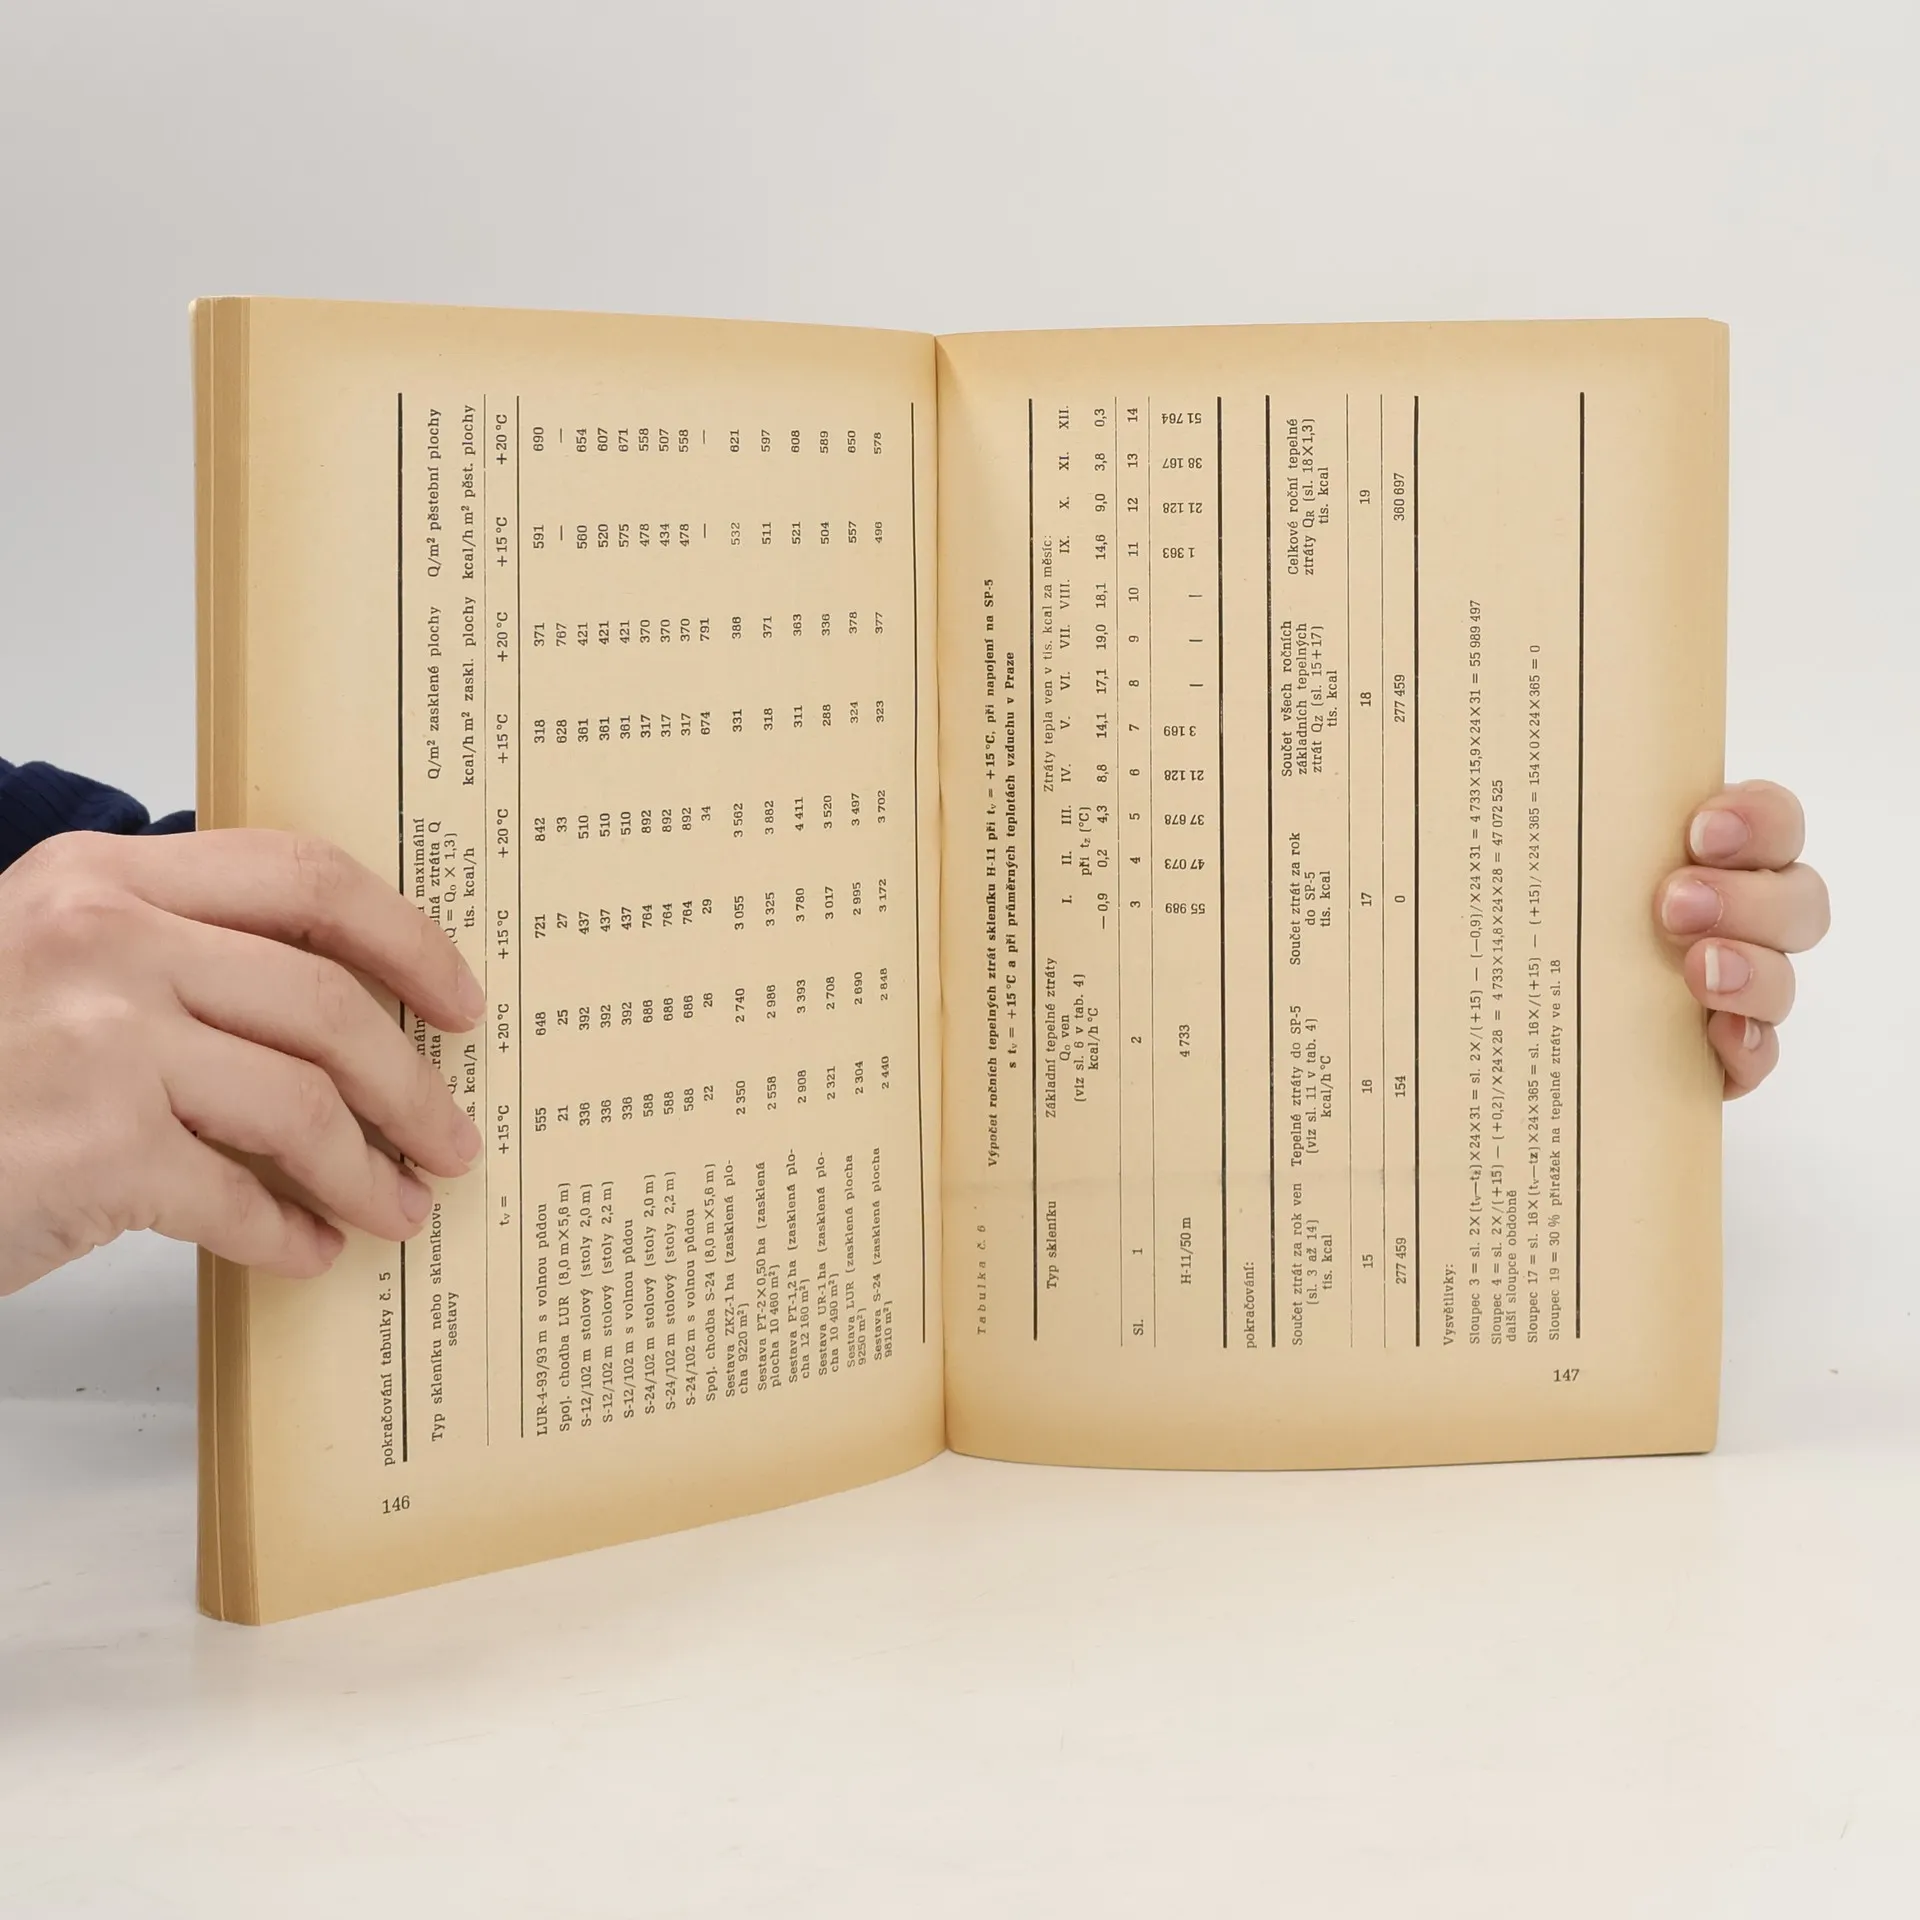 pokračování tabulky č. 5
Typ skleníku nebo skleníkové sestavy
maximální
ztráta Q
(Q = Q₀ X 1,3)
kcal/h tis. kcal/h
Q/m² zasklené plochy Q/m² pěstební plochy
kcal/h m² zaskl. plochy kcal/h m² pěst. plochy
tᵥ = +15 °C +20 °C +15 °C +20 °C +15 °C +20 °C +15 °C +20 °C
LUR-4-93/93 m s volnou půdou 555 648 721 842 318 371 591 690
Spoj. chodba LUR (8,0 m X 5,6 m) 21 25 27 33 628 767 — —
S-12/102 m stolový (stoly 2,0 m) 336 392 437 510 361 421 560 654
S-12/102 m stolový (stoly 2,2 m) 336 392 437 510 361 421 520 607
S-12/102 m s volnou půdou 336 392 437 510 361 421 575 671
S-24/102 m stolový (stoly 2,0 m) 588 686 764 892 317 370 478 558
S-24/102 m stolový (stoly 2,2 m) 588 686 764 892 317 370 434 507
S-24/102 m s volnou půdou 588 686 764 892 317 370 478 558
Spoj. chodba S-24 (8,0 m X 5,6 m) 22 26 29 34 674 791 — —
Sestava ZKZ-1 ha (zasklená plo-
cha 9220 m²) 2 350 2 740 3 055 3 562 331 388 532 621
Sestava PT-2 X 0,50 ha (zasklená
plocha 10 460 m²) 2 558 2 986 3 325 3 882 318 371 511 597
Sestava PT-1,2 ha (zasklená plo-
cha 12 160 m²) 2 908 3 393 3 780 4 411 311 363 521 608
Sestava UR-1 ha (zasklená plo-
cha 10 490 m²) 2 321 2 708 3 017 3 520 288 336 504 589
Sestava LUR (zasklená plocha
9250 m²) 2 304 2 690 2 995 3 497 324 378 557 650
Sestava S-24 (zasklená plocha
9810 m²) 2 440 2 848 3 172 3 702 323 377 496 578
146
Tabulka č. 6
Výpočet ročních tepelných ztrát skleníku H-11 při tᵥ = +15 °C, při napojení na SP-5
s tᵥ = +15 °C a při průměrných teplotách vzduchu v Praze
Typ skleníku
Základní tepelné ztráty
Q₀ ven
(viz sl. 6 v tab. 4)
kcal/h °C
Ztráty tepla ven v tis. kcal za měsíc:
I. II. III. IV. V. VI. VII. VIII. IX. X. XI. XII.
při t_z (°C)
—0,9 0,2 4,3 8,8 14,1 17,1 19,0 18,1 14,6 9,0 3,8 0,3
Sl. 1 2 3 4 5 6 7 8 9 10 11 12 13 14
H-11/50 m 4 733 55 989 47 073 37 678 21 128 3 169 — — — 1 363 21 128 38 167 51 764
pokračování:
Součet ztrát za rok ven
(sl. 3 až 14)
tis. kcal
Tepelné ztráty do SP-5
(viz sl. 11 v tab. 4)
kcal/h °C
Součet ztrát za rok
do SP-5
tis. kcal
Součet všech ročních
základních tepelných
ztrát Q_Z (sl. 15 + 17)
tis. kcal
Celkové roční tepelné
ztráty Q_R (sl. 18 X 1,3)
tis. kcal
15 16 17 18 19
277 459 154 0 277 459 360 697
Vysvětlivky:
Sloupec 3 = sl. 2 X (tᵥ—t_z) X 24 X 31 = sl. 2 X /(+15) — (—0,9)/ X 24 X 31 = 4 733 X 15,9 X 24 X 31 = 55 989 497
Sloupec 4 = sl. 2 X /(+15) — (+0,2)/ X 24 X 28 = 4 733 X 14,8 X 24 X 28 = 47 072 525
další sloupce obdobně
Sloupec 17 = sl. 16 X (tᵥ—t_z) X 24 X 365 = sl. 16 X /(+15) — (+15)/ X 24 X 365 = 154 X 0 X 24 X 365 = 0
Sloupec 19 = 30 % přirážek na tepelné ztráty ve sl. 18
147